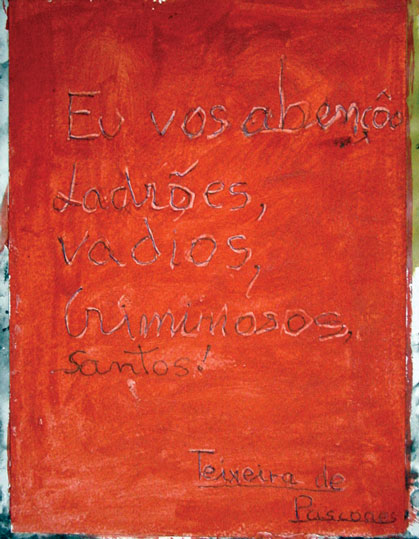 Eu vos abençôo
Ladrões,
vadios,
Criminosos,
santos!
Teixeira de
Pascoaes